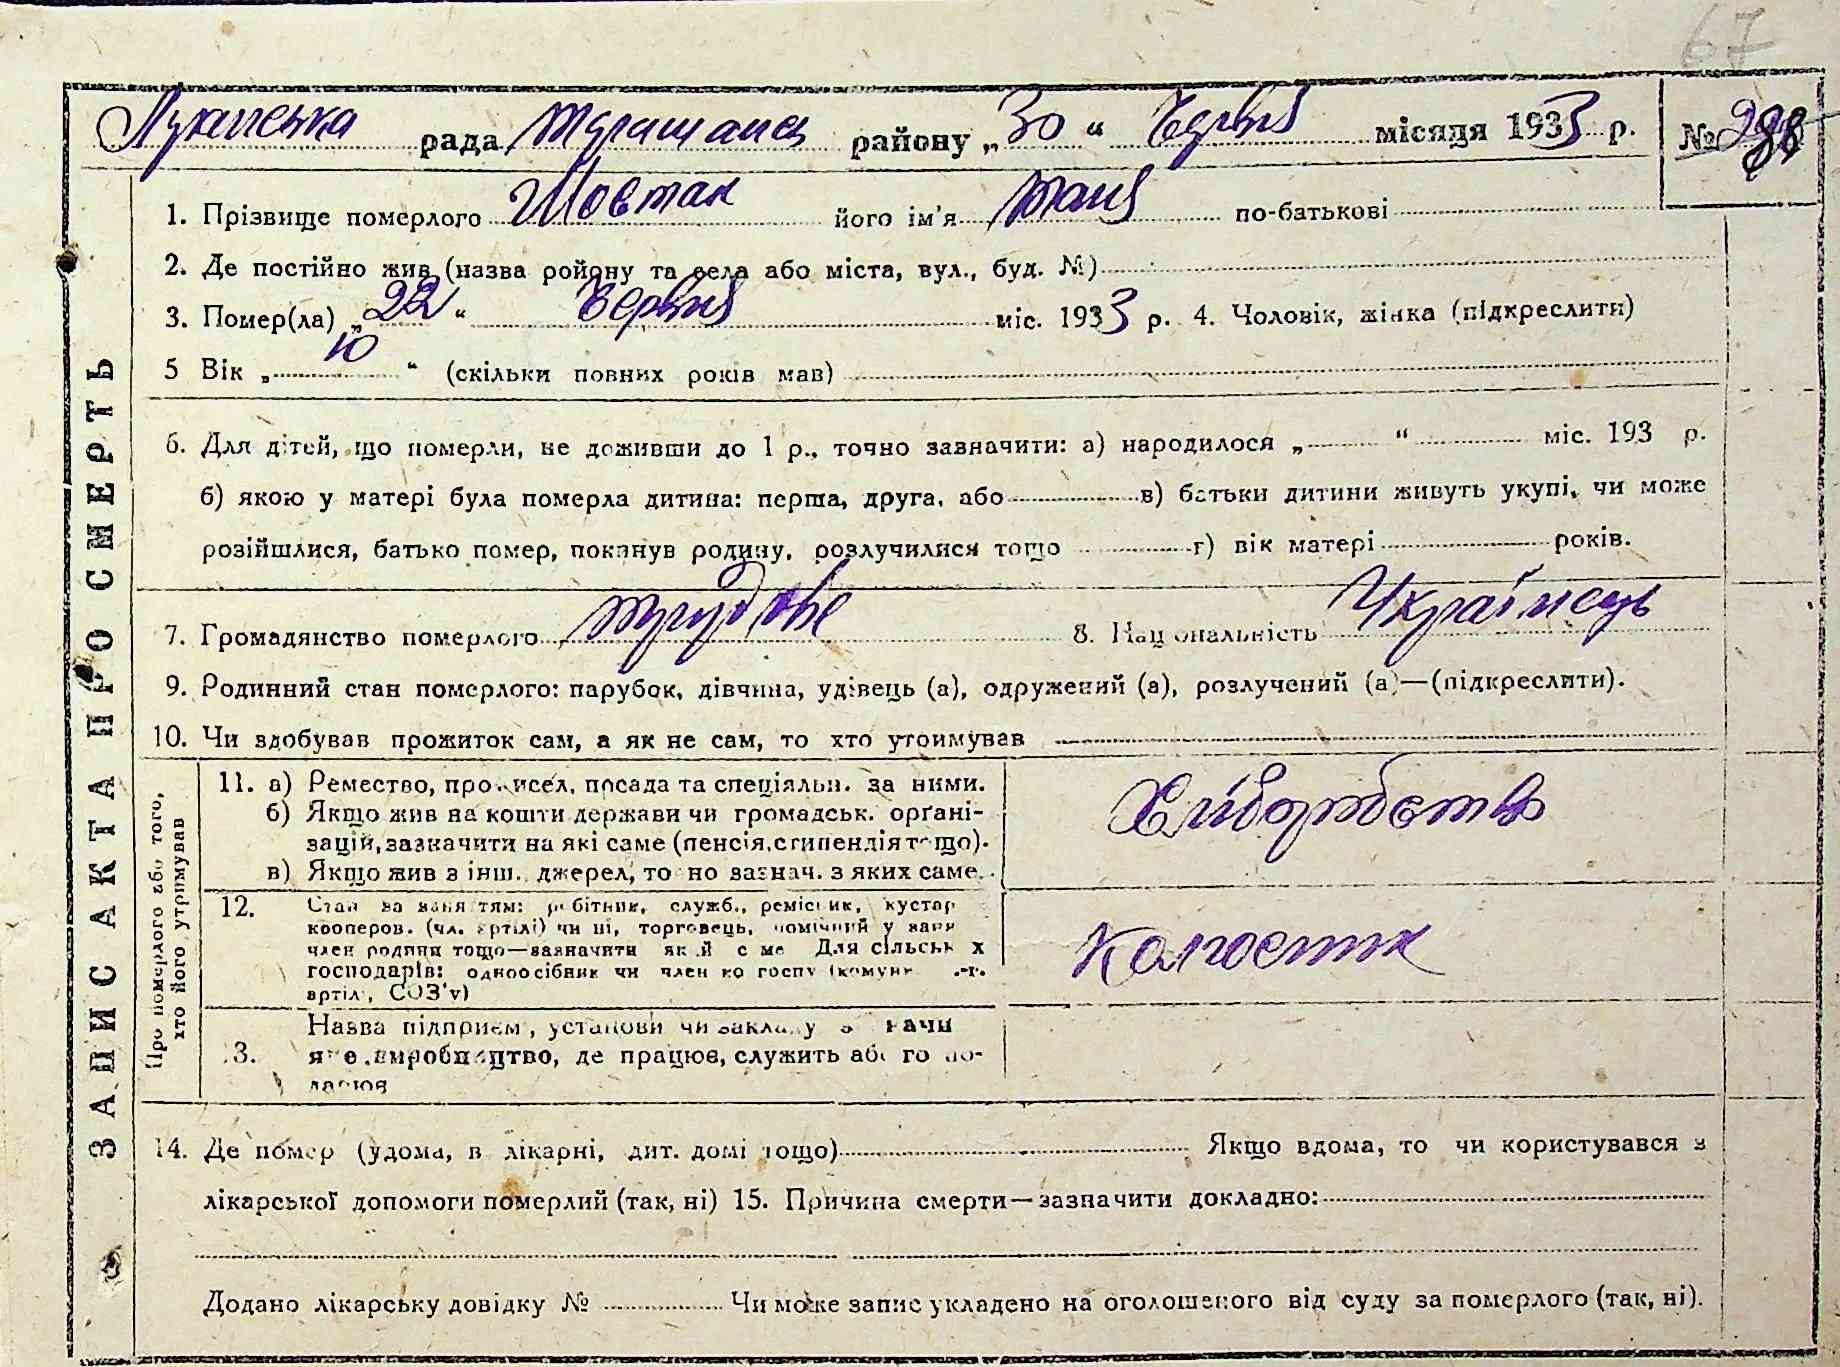 67
рада района „30“ Червня місяця 1933 р. №
1. Прізвище померлого Шовтак його ім'я Таня по-батькові
2. Де постійно жив (назва ройону та села або міста, вул., буд. №)
3. Помер(ла) „22“ Червня міс. 1933 р. 4. Чоловік, жінка (підкреслити)
5 Вік „10“ (скільки повних років мав)
6. Для дітей, що померли, не доживши до 1 р., точно зазначити: а) народилося „ “ міс. 193 р.
б) якою у матері була померла дитина: перша, друга, або в) батьки дитини живуть укупі, чи може
розійшлися, батько помер, покинув родину, розлучилися тощо г) вік матері років.
7. Громадянство померлого трудове 8. Національність Українець
9. Родинний стан померлого: парубок, дівчина, удівець (а), одружений (а), розлучений (а)—(підкреслити).
10. Чи здобував прожиток сам, а як не сам, то хто утоимував
ЗАПИС АКТА ПРО СМЕРТЬ
Про померлого або того,
хто його утримував
11. а) Ремество, промисел, посада та спеціальн. за ними.
б) Якщо жив на кошти держави чи громадськ. орґані-
зацій, зазначити на які саме (пенсія, стипендія тощо).
в) Якщо жив з інш. джерел, точно зазнач. з яких саме.
Хліборобство
12. Стан за заняттям: робітник, служб., ремісник, кустар
кооперов. (чл. артілі) чи ні, торговець, помічний у занят
член родини тощо—зазначити який саме Для сільських
господарів: одноосібник чи член колгоспу (комуни
артілі, СОЗ'у)
Колгоспник
13. Назва підприєм., установи чи закладу зазначи
яке виробництво, де працює, служить або го по-
14. Де помер (удома, в лікарні, дит. домі тощо) Якщо вдома, то чи користувався з
лікарської допомоги померлий (так, ні) 15. Причина смерти—зазначити докладно:
Додано лікарську довідку № Чи може запис укладено на оголошеного від суду за померлого (так, ні).